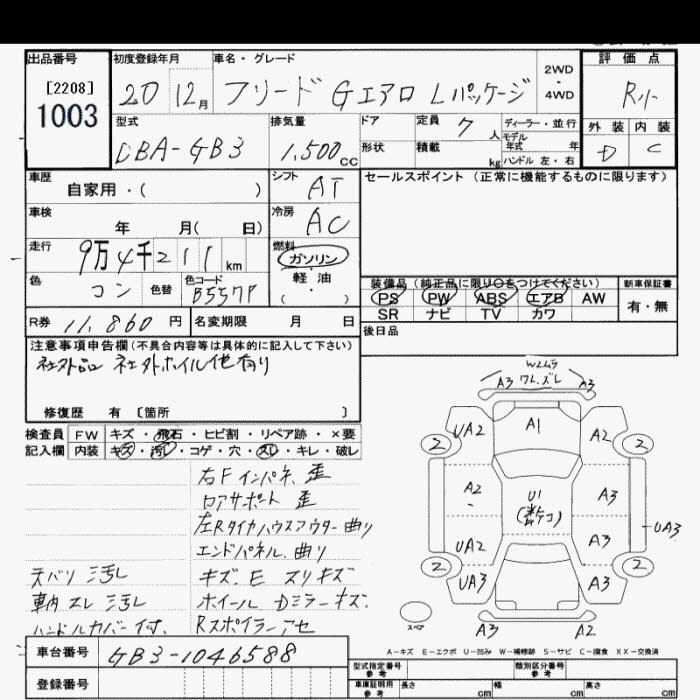 出品番号
[2208]
1003
初度登録年月
20 12月
車名・グレード
フリード Gエアロ Lパッケージ
2WD
・
4WD
評価点
R小
外装 内装
D C
型式
DBA-GB3
排気量
1,500cc
ドア
形状
定員 7人
積載 kg
ディーラー・並行
モデル年式 年
ハンドル 左・右
車歴
自家用・( )
シフト
AT
セールスポイント(正常に機能するものに限ります)
車検
年 月( 日)
冷房
AC
走行
9万4千211km
燃料
ガソリン
軽油
( ・ )
色
コン
色替
色コード
B557P
装備品(純正品に限り○をつけてください)
PS PW ABS エアB AW
SR ナビ TV カワ
新車保証書
有・無
R券 11,860円
名変期限 月 日
後日品
注意事項申告欄(不具合内容等は具体的に記入して下さい)
社外品 社外ホイル他有り
修復歴 有 [箇所 ]
検査員 FW キズ・飛石・ヒビ割・リペア跡・×要
記入欄 内装 キズ・汚レ・コゲ・穴・スレ・キレ・破レ
右Fインパネ 歪
ロアサポート 歪
左Rタイヤハウスアウター曲り
エンドパネル 曲り
天バリ 汚レ
キズ、E スリキズ
車内 スレ 汚レ
ホイール Dミラーキズ
ハンドルカバー付
Rスポイラーアセ
A3 ワレ.ズレ A3
A1
2 UA2 A2 2
A2 U1 A3
UA3
UA2 A3
2 UA3 A3 2
スペア
A3 A2
A-キズ E-エクボ U-凹み W-補修跡 S-サビ C-腐食 XX-交換済
車台番号
GB3-1046588
登録番号
型式指定番号
参考
類別区分番号
参考
車庫証明用
参考
長さ cm 幅 cm 高さ cm